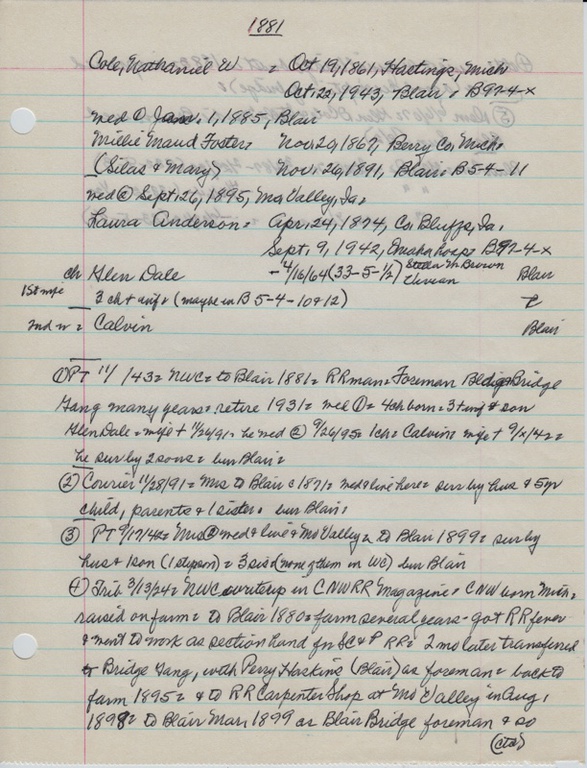 1881
Cole, Nathaniel W = Oct 19, 1861, Hastings, Mich
Oct. 22, 1943, Blair = B97-4-x
med ① Jan. 1, 1885, Blair
Millie Maud Foster = Nov. 20, 1867, Berry Co, Mich.
(Silas & Mary) Nov. 26, 1891, Blair = B5-4-11
med ② Sept. 26, 1895, Mo Valley, Ia.
Laura Anderson = Apr. 24, 1874, Co. Bluffs, Ia.
Sept. 9, 1942, Omaha Hosp = B97-4-x
ch Glen Dale - 4/16/64 (33-5-1/2) Stella M Brown Blair
Vivian
1st wife 3 ch + wife (maybe in B 5-4-10 & 12)
2nd w = Calvin Blair
① PT 11/ /43 = NWC = to Blair 1881 = RR man = Foreman Bldg & Bridge
Gang many years = retire 1931 = med ① = 4 ch born = 3 + inf & son
Glen Dale = wife + 11/26/91 = he med ② 9/26/95 = 1 ch = Calvin = wife + 9/x/42 =
he sur by 2 sons = bur Blair =
② Courier 11/28/91 = Mrs to Blair c 1871 = med & live here = sur by hus & 5 yr
child, parents & 1 sister = bur Blair =
③ PT 9/17/42 = Mrs ② med & live @ Mo Valley = to Blair 1899 = sur by
hus & 1 son (1 stepson) = 3 sis (none of them in WC) bur Blair
④ Trib 3/13/24 = NWC writeup in CNWRR Magazine = CNW born Mich =
raised on farm = to Blair 1880 = farm several years - got RR fever
& went to work as section hand for SC & P RR = 2 mo later transferred
to Bridge Gang, with Perry Hoskins (Blair) as foreman = back to
farm 1895 = & to RR Carpenter Shop at Mo Valley in Aug,
1898 = to Blair Mar, 1899 as Blair Bridge foreman & so
(ctd)